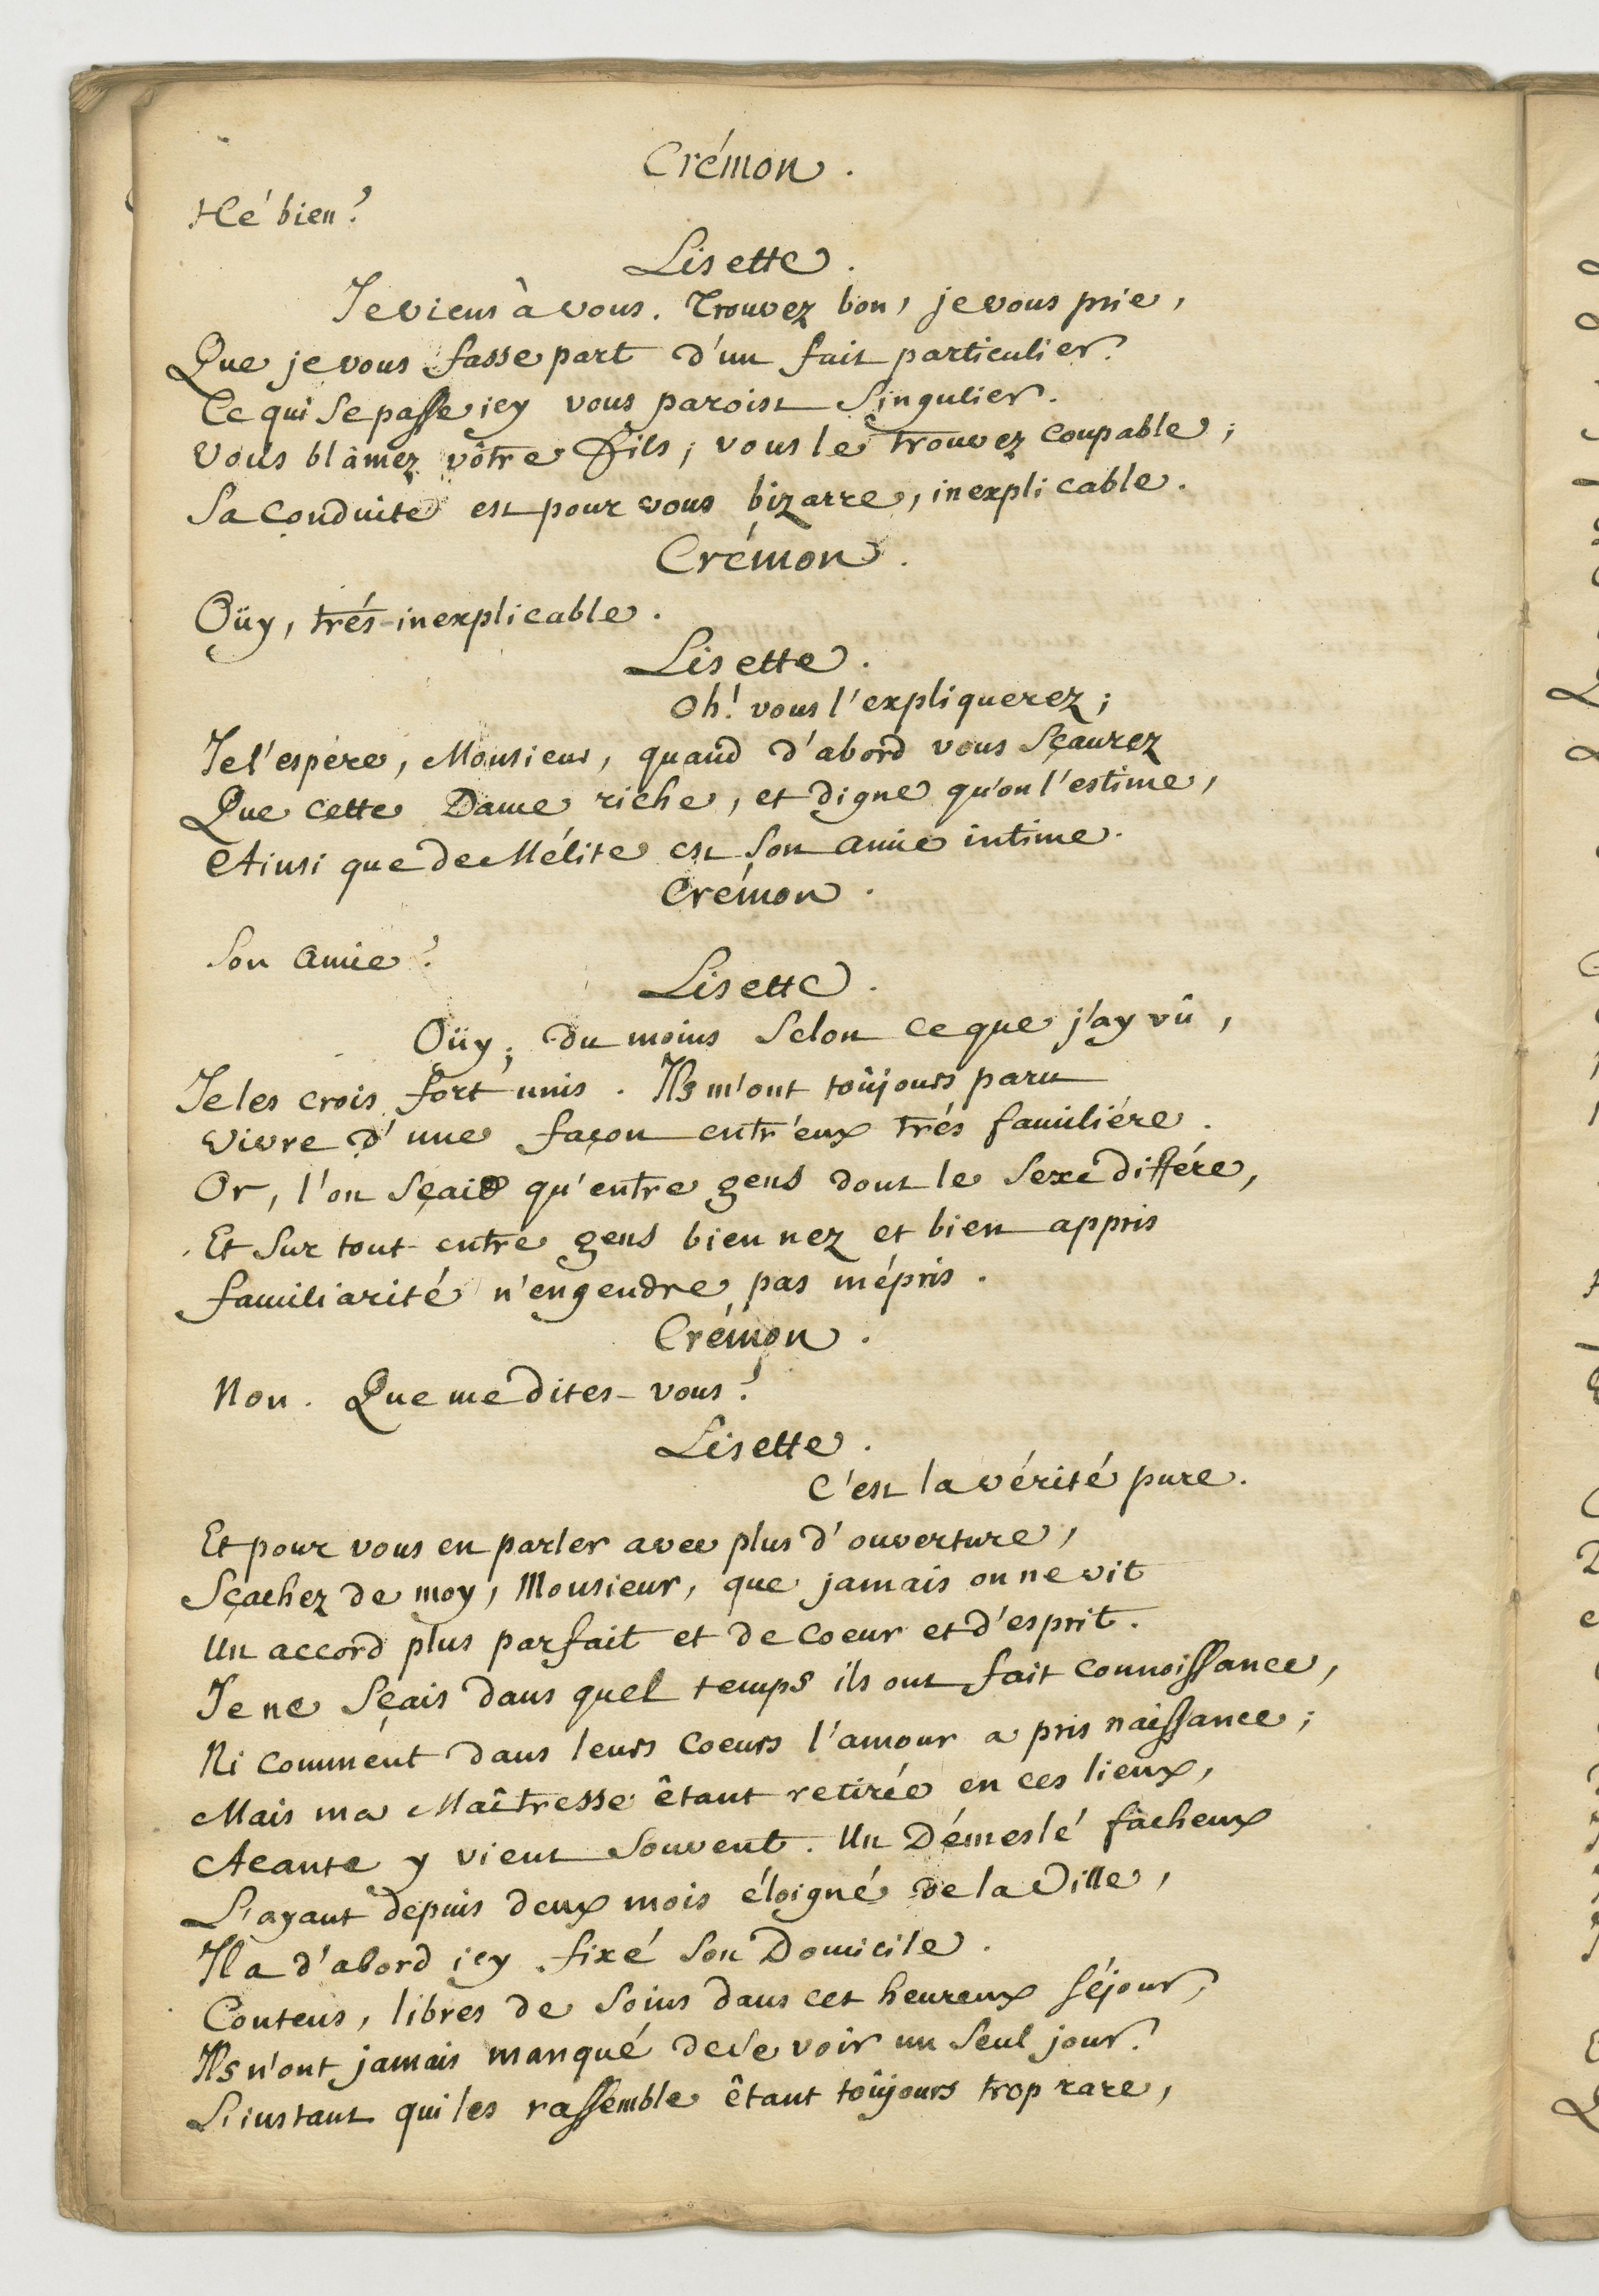 Crémon.
Hé bien?
Lisette.
Je viens à vous. Trouvez bon, je vous prie,
Que je vous fasse part d'un fait particulier.
Ce qui se passe icy vous paroist singulier.
Vous blâmez vôtre Fils; vous le trouvez coupable;
Sa conduite est pour vous bizarre, inexplicable.
Crémon.
Oüy, trés-inexplicable.
Lisette.
Oh! vous l'expliquerez;
Je l'espére, Monsieur, quand d'abord vous sçaurez
Que cette Dame riche, et digne qu'on l'estime,
Ainsi que de Mélite est son amie intime.
Crémon.
Son amie?
Lisette.
Oüy; du moins selon ce que j'ay vû,
Je les crois fort unis. Ils m'ont toûjours paru
Vivre d'une façon entr'eux trés familiére.
Or, l'on sçait qu'entre gens dont le sexe différe,
Et sur tout entre gens bien nez et bien appris
familiarité n'engendre pas mépris.
Crémon.
Non. Que me dites-vous?
Lisette.
C'est la vérité pure.
Et pour vous en parler avec plus d'ouverture,
Sçachez de moy, Monsieur, que jamais on ne vit
Un accord plus parfait et de coeur et d'esprit.
Je ne sçais dans quel temps ils ont fait connoissance,
Ni comment dans leurs coeurs l'amour a pris naissance;
Mais ma Maîtresse êtant retirée en ces lieux,
Acante y vient souvent. Un Démeslé fâcheux
L'ayant depuis deux mois éloigné de la Ville,
Il a d'abord icy fixé son Domicile.
Contens, libres de soins dans cet heureux séjour,
Ils n'ont jamais manqué de se voir un seul jour.
L'instant qui les rassemble êtant toûjours trop rare,